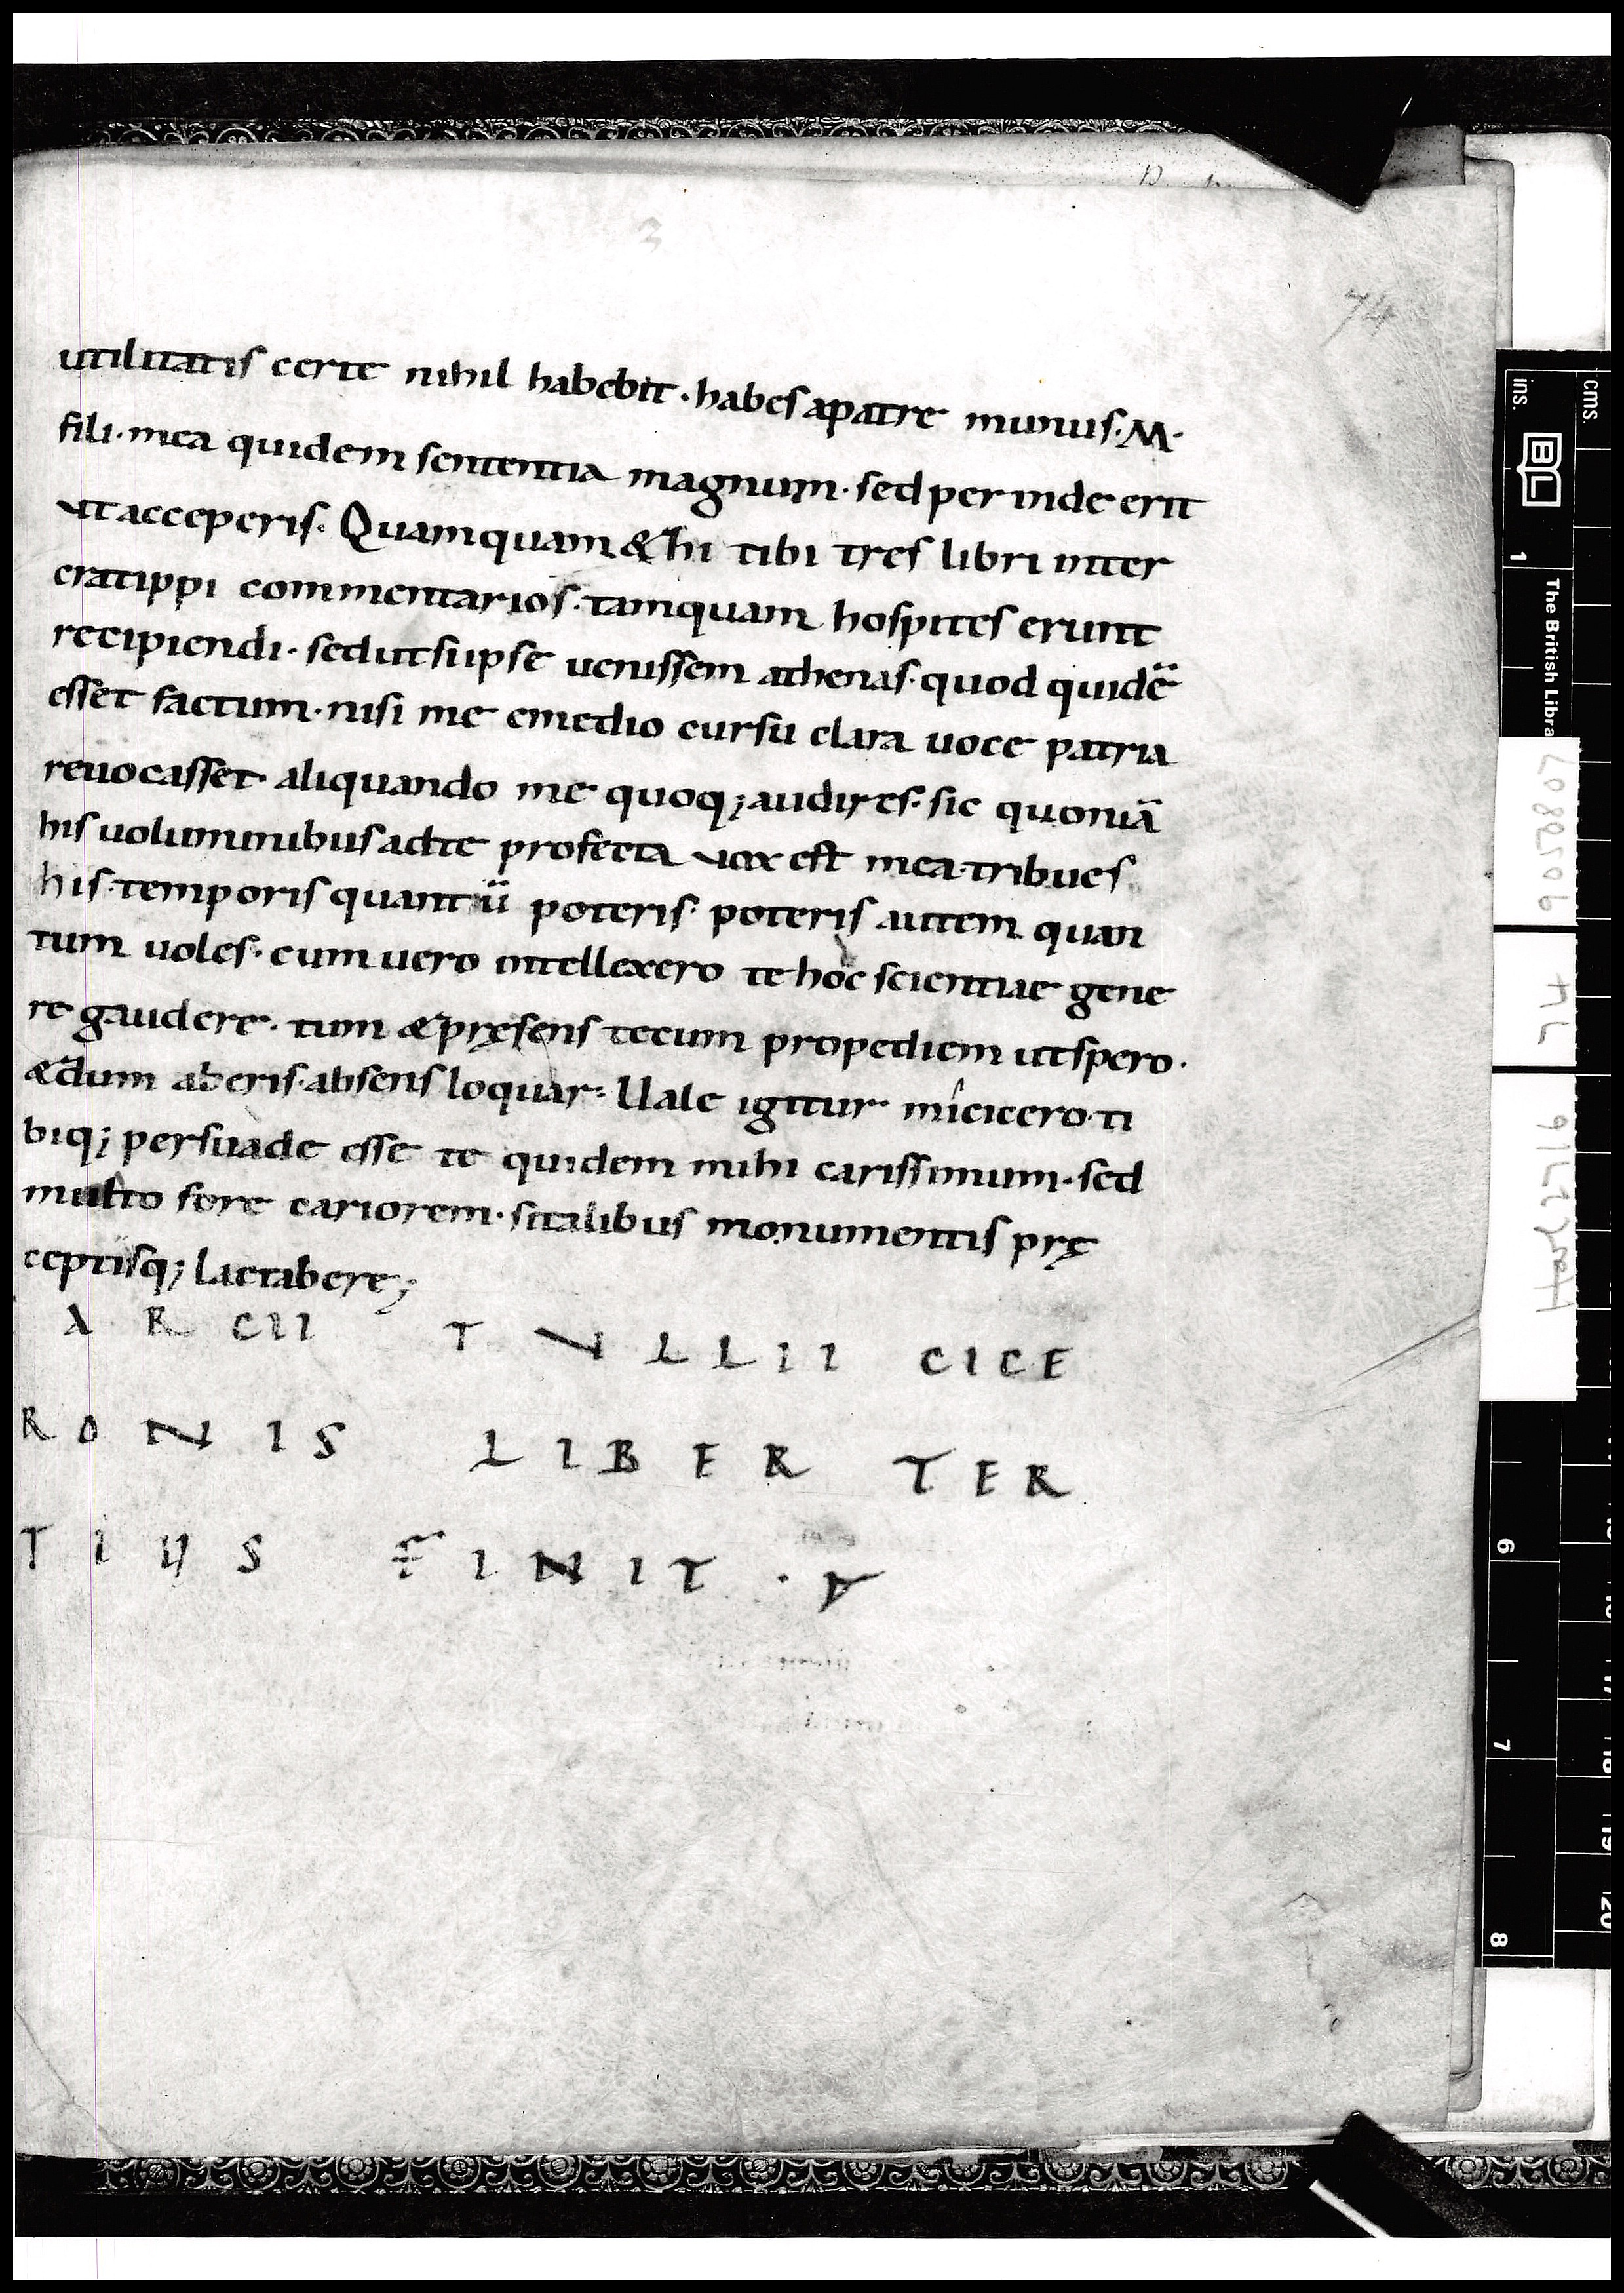 74
utilitatis certe nihil habebit · habes apatre munus · M ·
fili · mea quidem sententia magnum · sed per inde erit
ut acceperis · Quamquam & hi tibi tres libri inter
cratippi commentarios · tamquam hospites erunt
recipiendi · sed utsiipse uenissem athenas · quod quidē
esset factum · nisi me emedio cursu clara uoce patria
reuocasset · aliquando me quoq; audires · sic quoniā
his uoluminibus adte profecta uox est mea · tribues
his · temporis quantū poteris · poteris autem quan
tum uoles · cum uero intellexero te hoc scientiae gene
re gaudere · tum & pręsens tecum propediem utspero ·
& dum aberis · absens loquar · Uale igitur mi cicero · ti
biq; persuade esse te quidem mihi carissimum · sed
multo fore cariorem · sitalibus monumentis prę
ceptisq; laetabere;
ARCII TULLII CICE
RONIS LIBER TER
TIUS FINIT ·
cms.
ins.
BL
1
The British Libra
6
7
8
19
20
6052807
74
Harl 2716